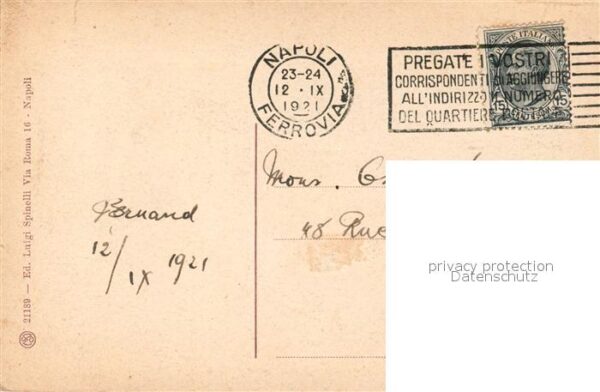 NAPOLI
23-24
12 · IX
1921
FERROVIA
POSTE ITALIANE
PREGATE I VOSTRI
CORRISPONDENTI DI AGGIUNGERE
ALL'INDIRIZZO IL NUMERO
DEL QUARTIERE POSTALE
15 15
Mons.
48 Rue
Bernand
12/IX 1921
21189 — Ed. Luigi Spinelli Via Roma 16 - Napoli
privacy protection
Datenschutz